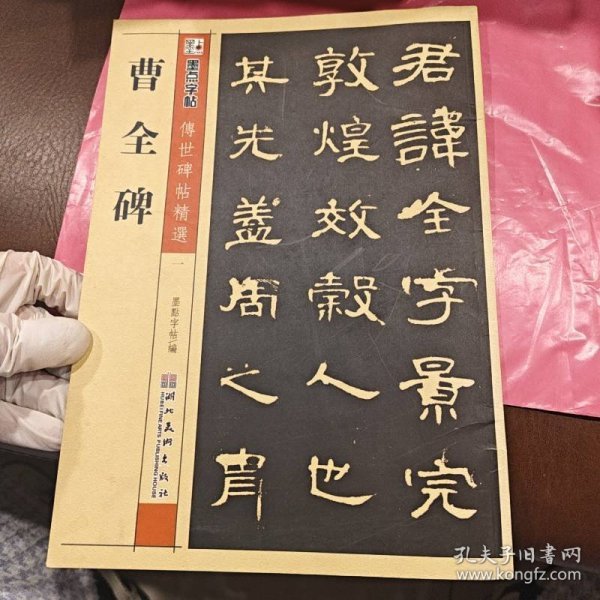 曹全碑
墨点字帖
傳世碑帖精選
一
墨點字帖 編
湖北美術出版社
HUBEI FINE ARTS PUBLISHING HOUSE
君諱全字景完
敦煌效穀人也
其先蓋周之胄
孔夫子旧书网
www.kongfz.com